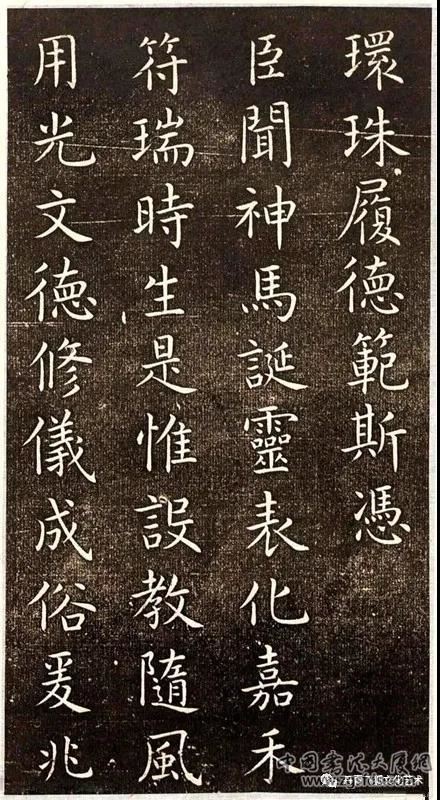 環珠履德範斯憑
臣聞神馬誕靈表化嘉禾
符瑞時生是惟設教隨風
用光文德修儀成俗爰兆
中国书法大展网